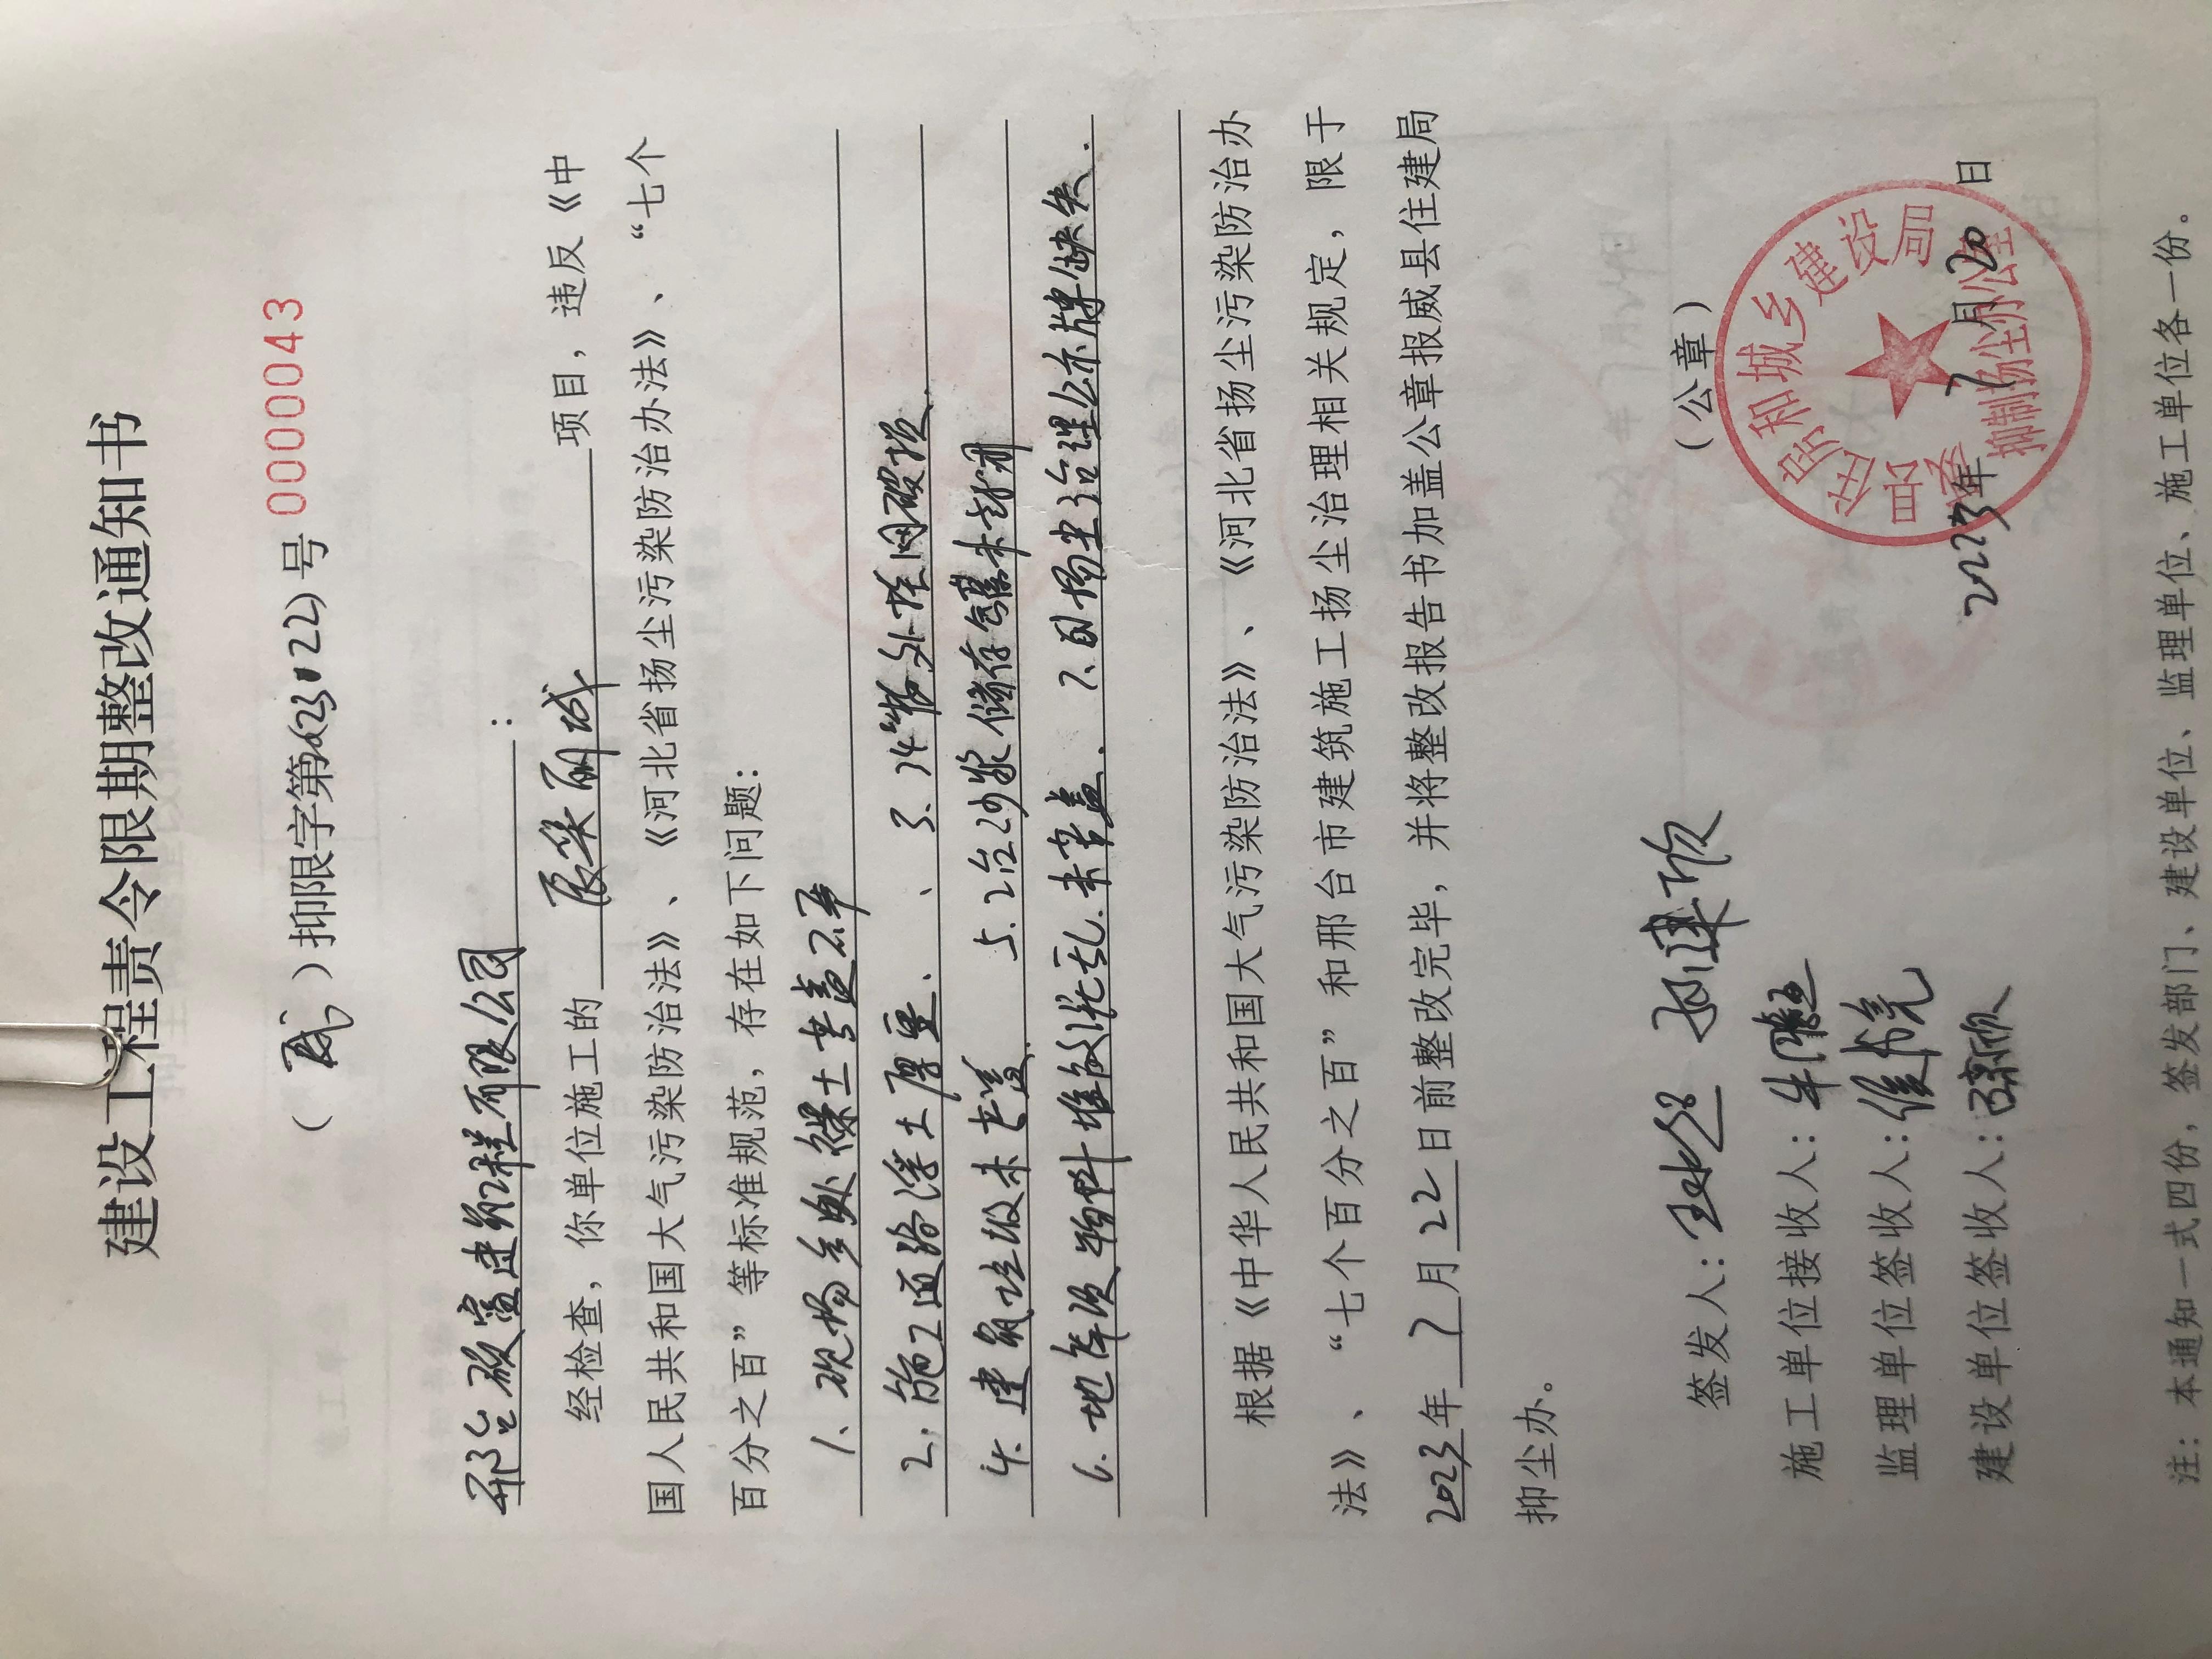 建设工程责令限期整改通知书
（威）抑限字第(2023022)号 0000043
邢台硕宣建筑工程有限公司：
经检查，你单位施工的 辰华丽城 项目，违反《中
国人民共和国大气污染防治法》、《河北省扬尘污染防治办法》、“七个
百分之百”等标准规范，存在如下问题：
1、现场多处裸土苫盖不严
2、施工道路浮土厚重、 、3、14#楼外挂网破损.
4、建筑垃圾未苫盖. 5、2台砂浆储存罐未封闭
6、地库顶物料堆放混乱.未苫盖. 7、扬尘治理公示牌缺失.
根据《中华人民共和国大气污染防治法》、《河北省扬尘污染防治办
法》、“七个百分之百”和邢台市建筑施工扬尘治理相关规定，限于
2023年7月22日前整改完毕，并将整改报告书加盖公章报威县住建局
抑尘办。
签发人： （公章）
施工单位接收人：牛
监理单位签收人：侯
建设单位签收人：
住房和城乡建设局
抑制扬尘办公室
2023年7月20日
注：本通知一式四份，签发部门、建设单位、监理单位、施工单位各一份。